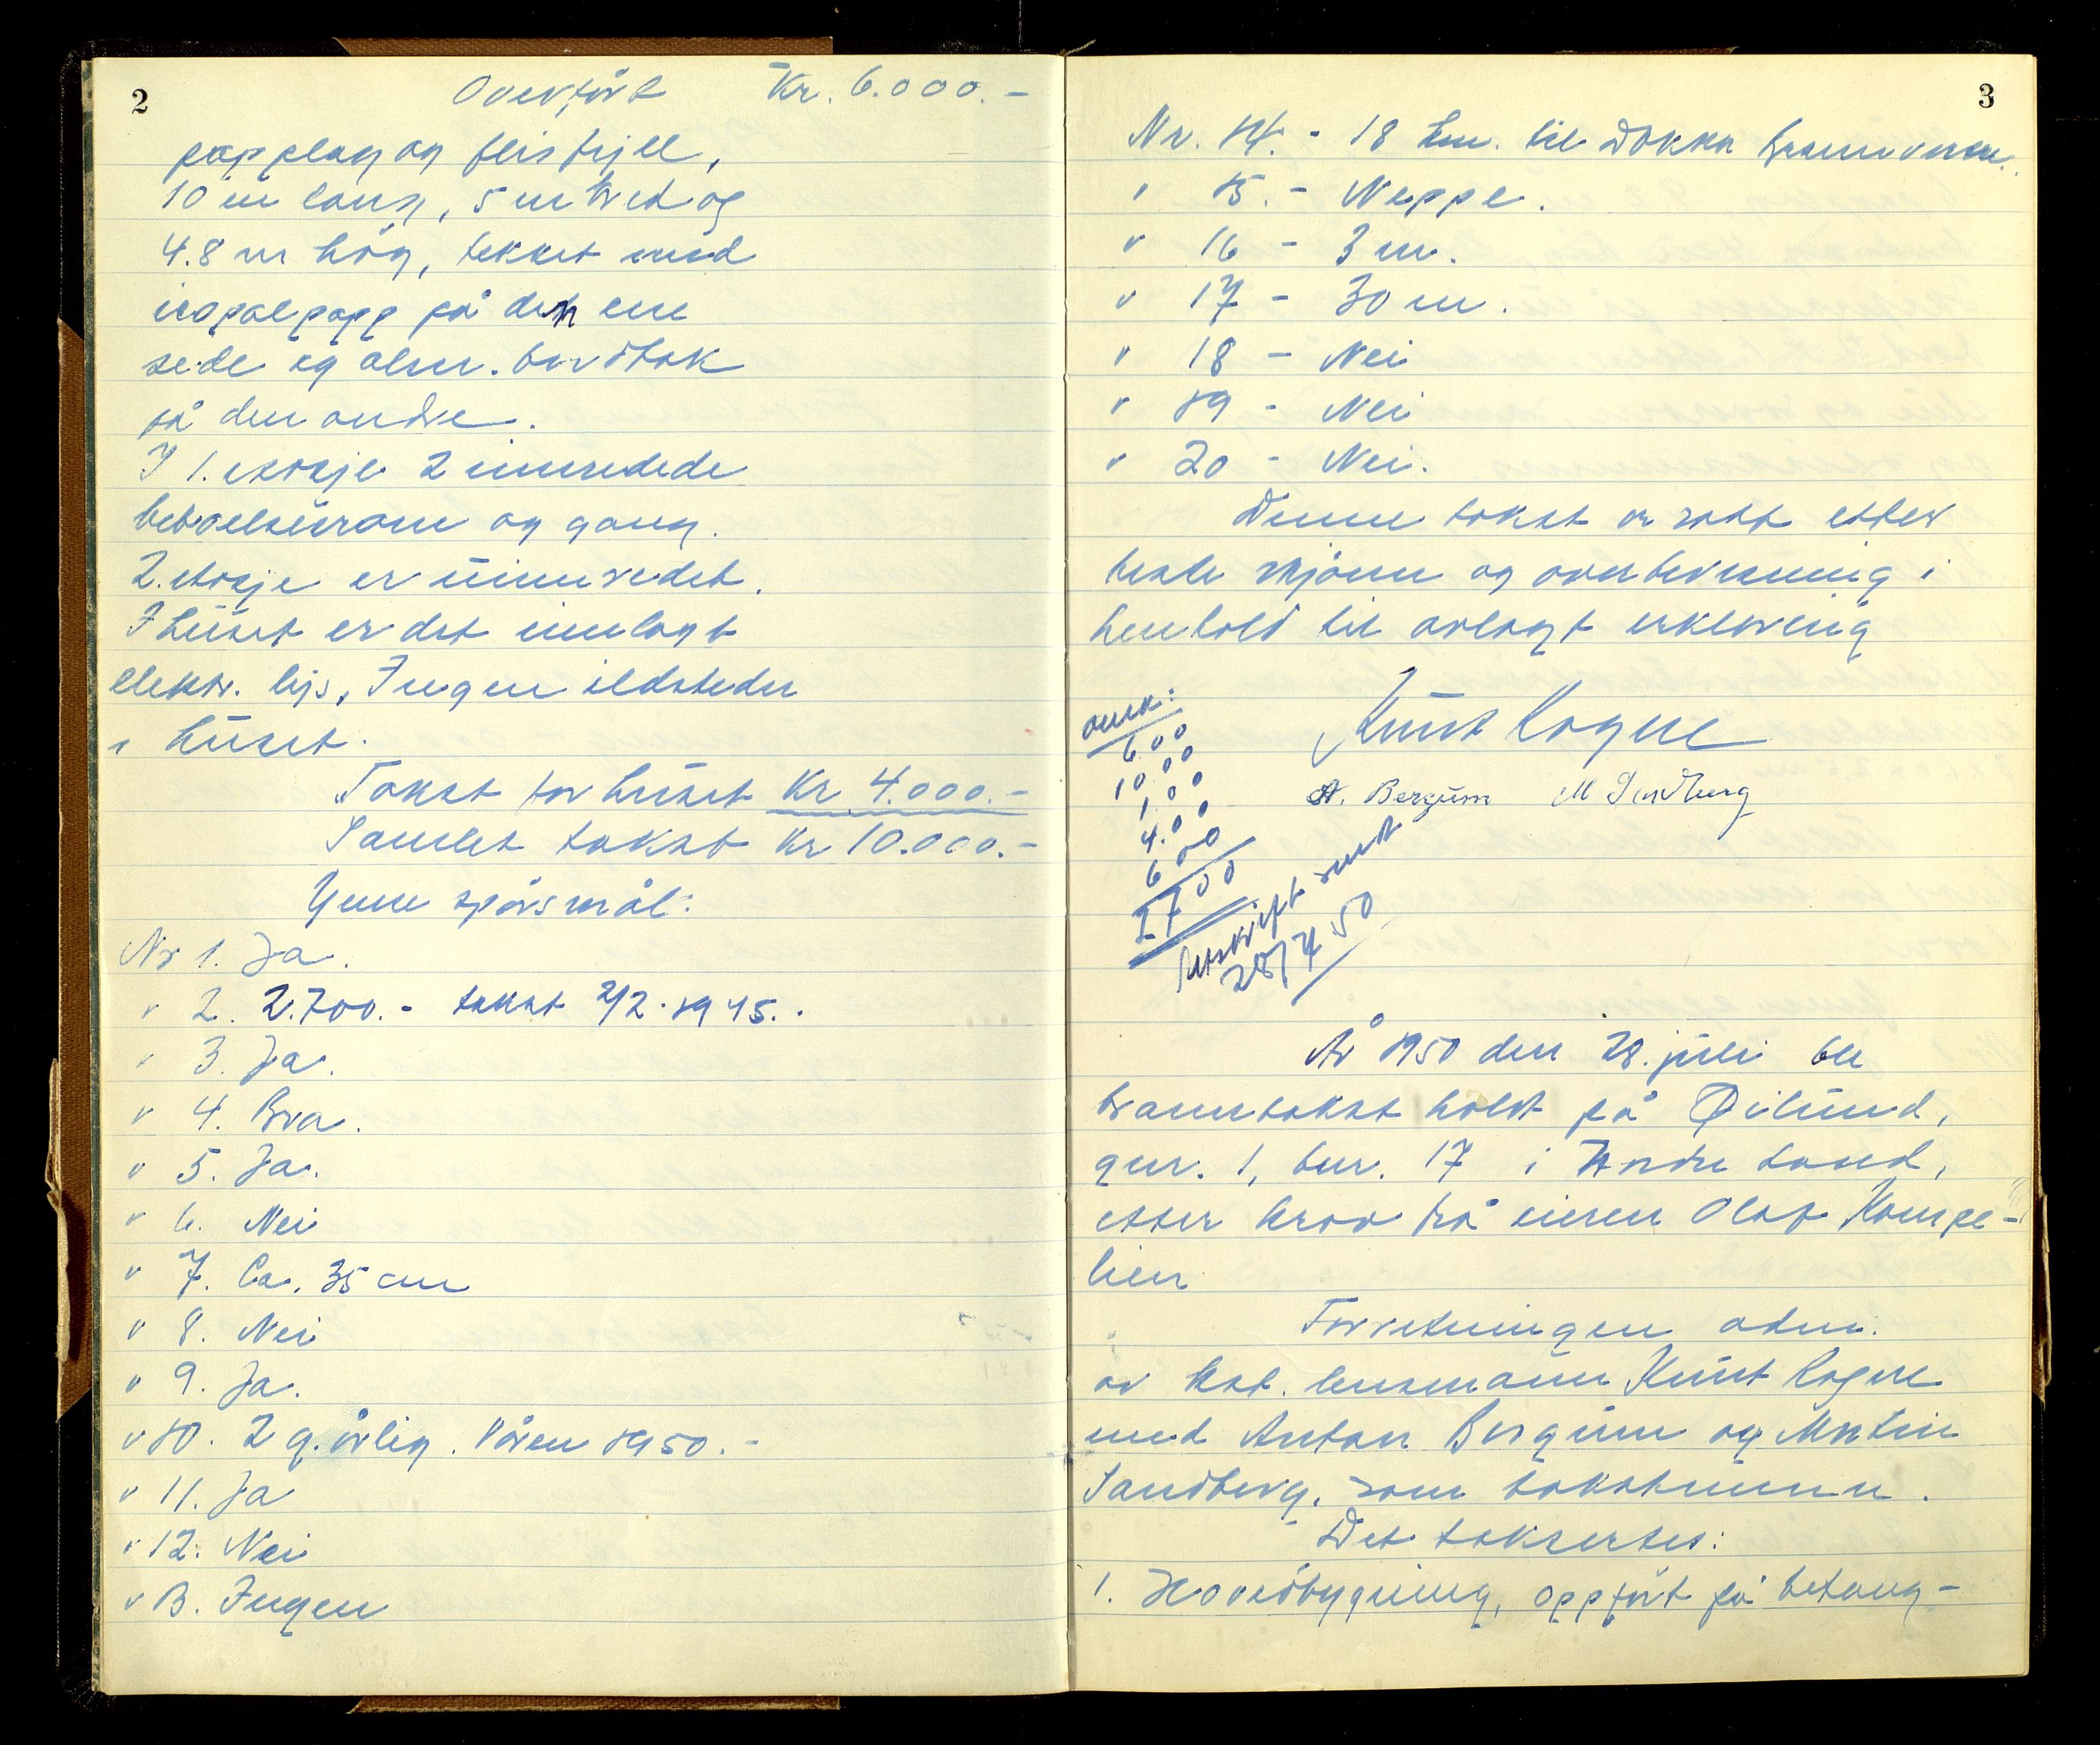 2
Overført Kr. 6.000.-
papplag og flisfyll,
10 m lang, 5 m bred og
4.8 m høg, tekket med
isopalpapp på den ene
side og alm. bordtak
på den andre.
I 1. etasje 2 innredede
beboelsesrom og gang.
2. etasje er uinnredet.
I huset er det innlagt
elektr. lys, Ingen ildsteder
i huset.
Takst for huset Kr 4.000.-
Samlet takst Kr 10.000.-
Ymse spørsmål:
Nr 1. Ja.
" 2. 2.700.- takst 2/2.1945.
" 3. Ja.
" 4. Bra.
" 5. Ja.
" 6. Nei
" 7. Ca. 35 cm
" 8. Nei
" 9. Ja.
" 10. 2 g. årlig. Våren 1950.-
" 11. Ja
" 12. Nei
" 13. Ingen
3
Nr. 14. - 18 km. til Dokka brannvesen.
" 15. - Neppe.
" 16 - 3 m.
" 17 - 30 m.
" 18 - Nei
" 19 - Nei
" 20 - Nei.
Denne takst er satt etter
beste skjønn og overbevisning i
henhold til avlagt erklæring
Knut Rogne
A. Bergum M Sandberg
600
1000
100
4.00
600
2700
Utskrift sendt
28/7 50
År 1950 den 28. juli ble
branntakst holdt på Øilund,
gnr. 1, bnr. 17 i Nordre Land,
etter krav frå eieren Olaf Kompe-
lien
Forretningen adm.
av kst. lensmann Knut Rogne
med Anton Bergum og Martin
Sandberg, som takstmenn.
Det taksertes:
1. Hovedbygning, oppført på betong-